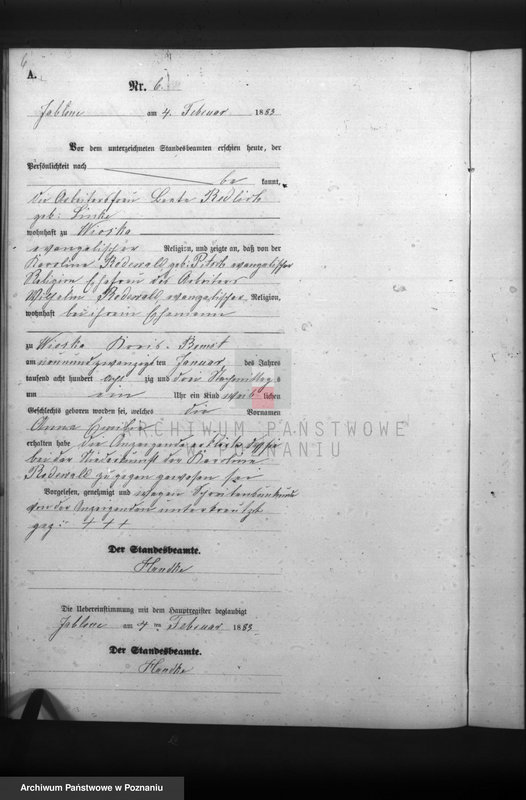 6
A.
Nr. 6.
Jablone am 4. Februar 1883
Vor dem unterzeichneten Standesbeamten erschien heute, der
Persönlichkeit nach
be kannt,
die Arbeitersfrau Beate Redlich
geb: Linke
wohnhaft zu Wioska
evangelischer Religion, und zeigte an, daß von der
Karoline Rodewald geb: evangelischer
Religion Ehefrau des Arbeiters
Wilhelm Rodewald evangelischer Religion,
wohnhaft bei ihrem Ehemann
zu Wioska Kreis: Bomst
am neunundzwanzigsten Januar des Jahres
tausend acht hundert acht zig und drei Nachmittags
um ein Uhr ein Kind weib lichen
Geschlechts geboren worden sei, welches die Vornamen
Anna Emilie
erhalten habe Die Anzeigende erklärte daß sie
bei der Niederkunft der Karoline
Rodewald zugegen gewesen sei
Vorgelesen, genehmigt und wegen Schreibensunkunde
von der Anzeigenden unterkreuzt
gez: + + +
Der Standesbeamte.
Handke
Die Uebereinstimmung mit dem Hauptregister beglaubigt
Jablone am 4 ten Februar 1883
Der Standesbeamte.
Handke
ARCHIWUM PAŃSTWOWE
W POZNANIU
Archiwum Państwowe w Poznaniu